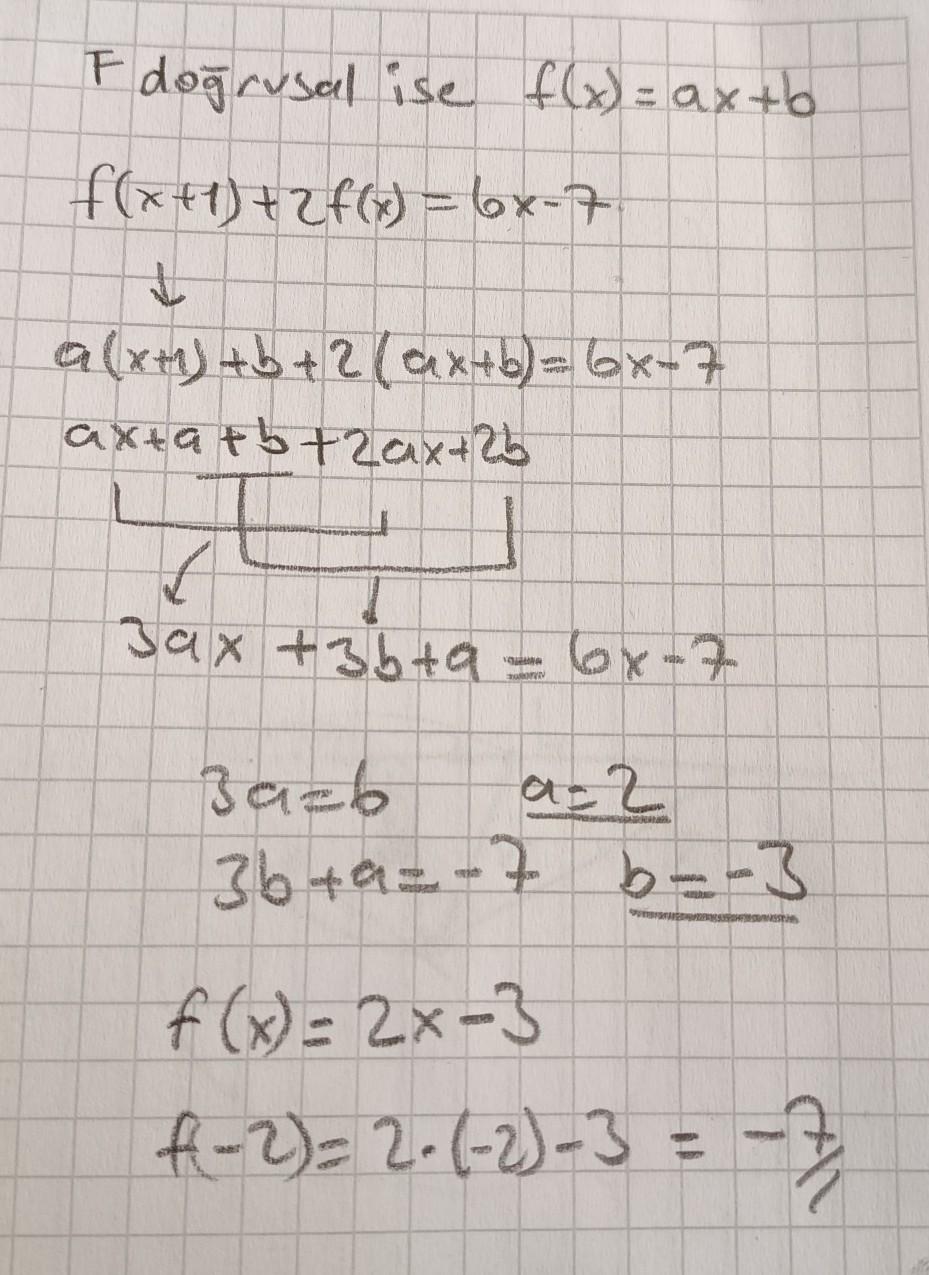 F doğrusal ise f(x)=ax+b
f(x+1)+2f(x)=6x-7
↓
a(x+1)+b+2(ax+b)=6x-7
ax+a+b+2ax+2b
3ax +3b+a = 6x-7
3a=6 a=2
3b+a=-7 b=-3
f(x)=2x-3
f(-2)=2.(-2)-3 = -7